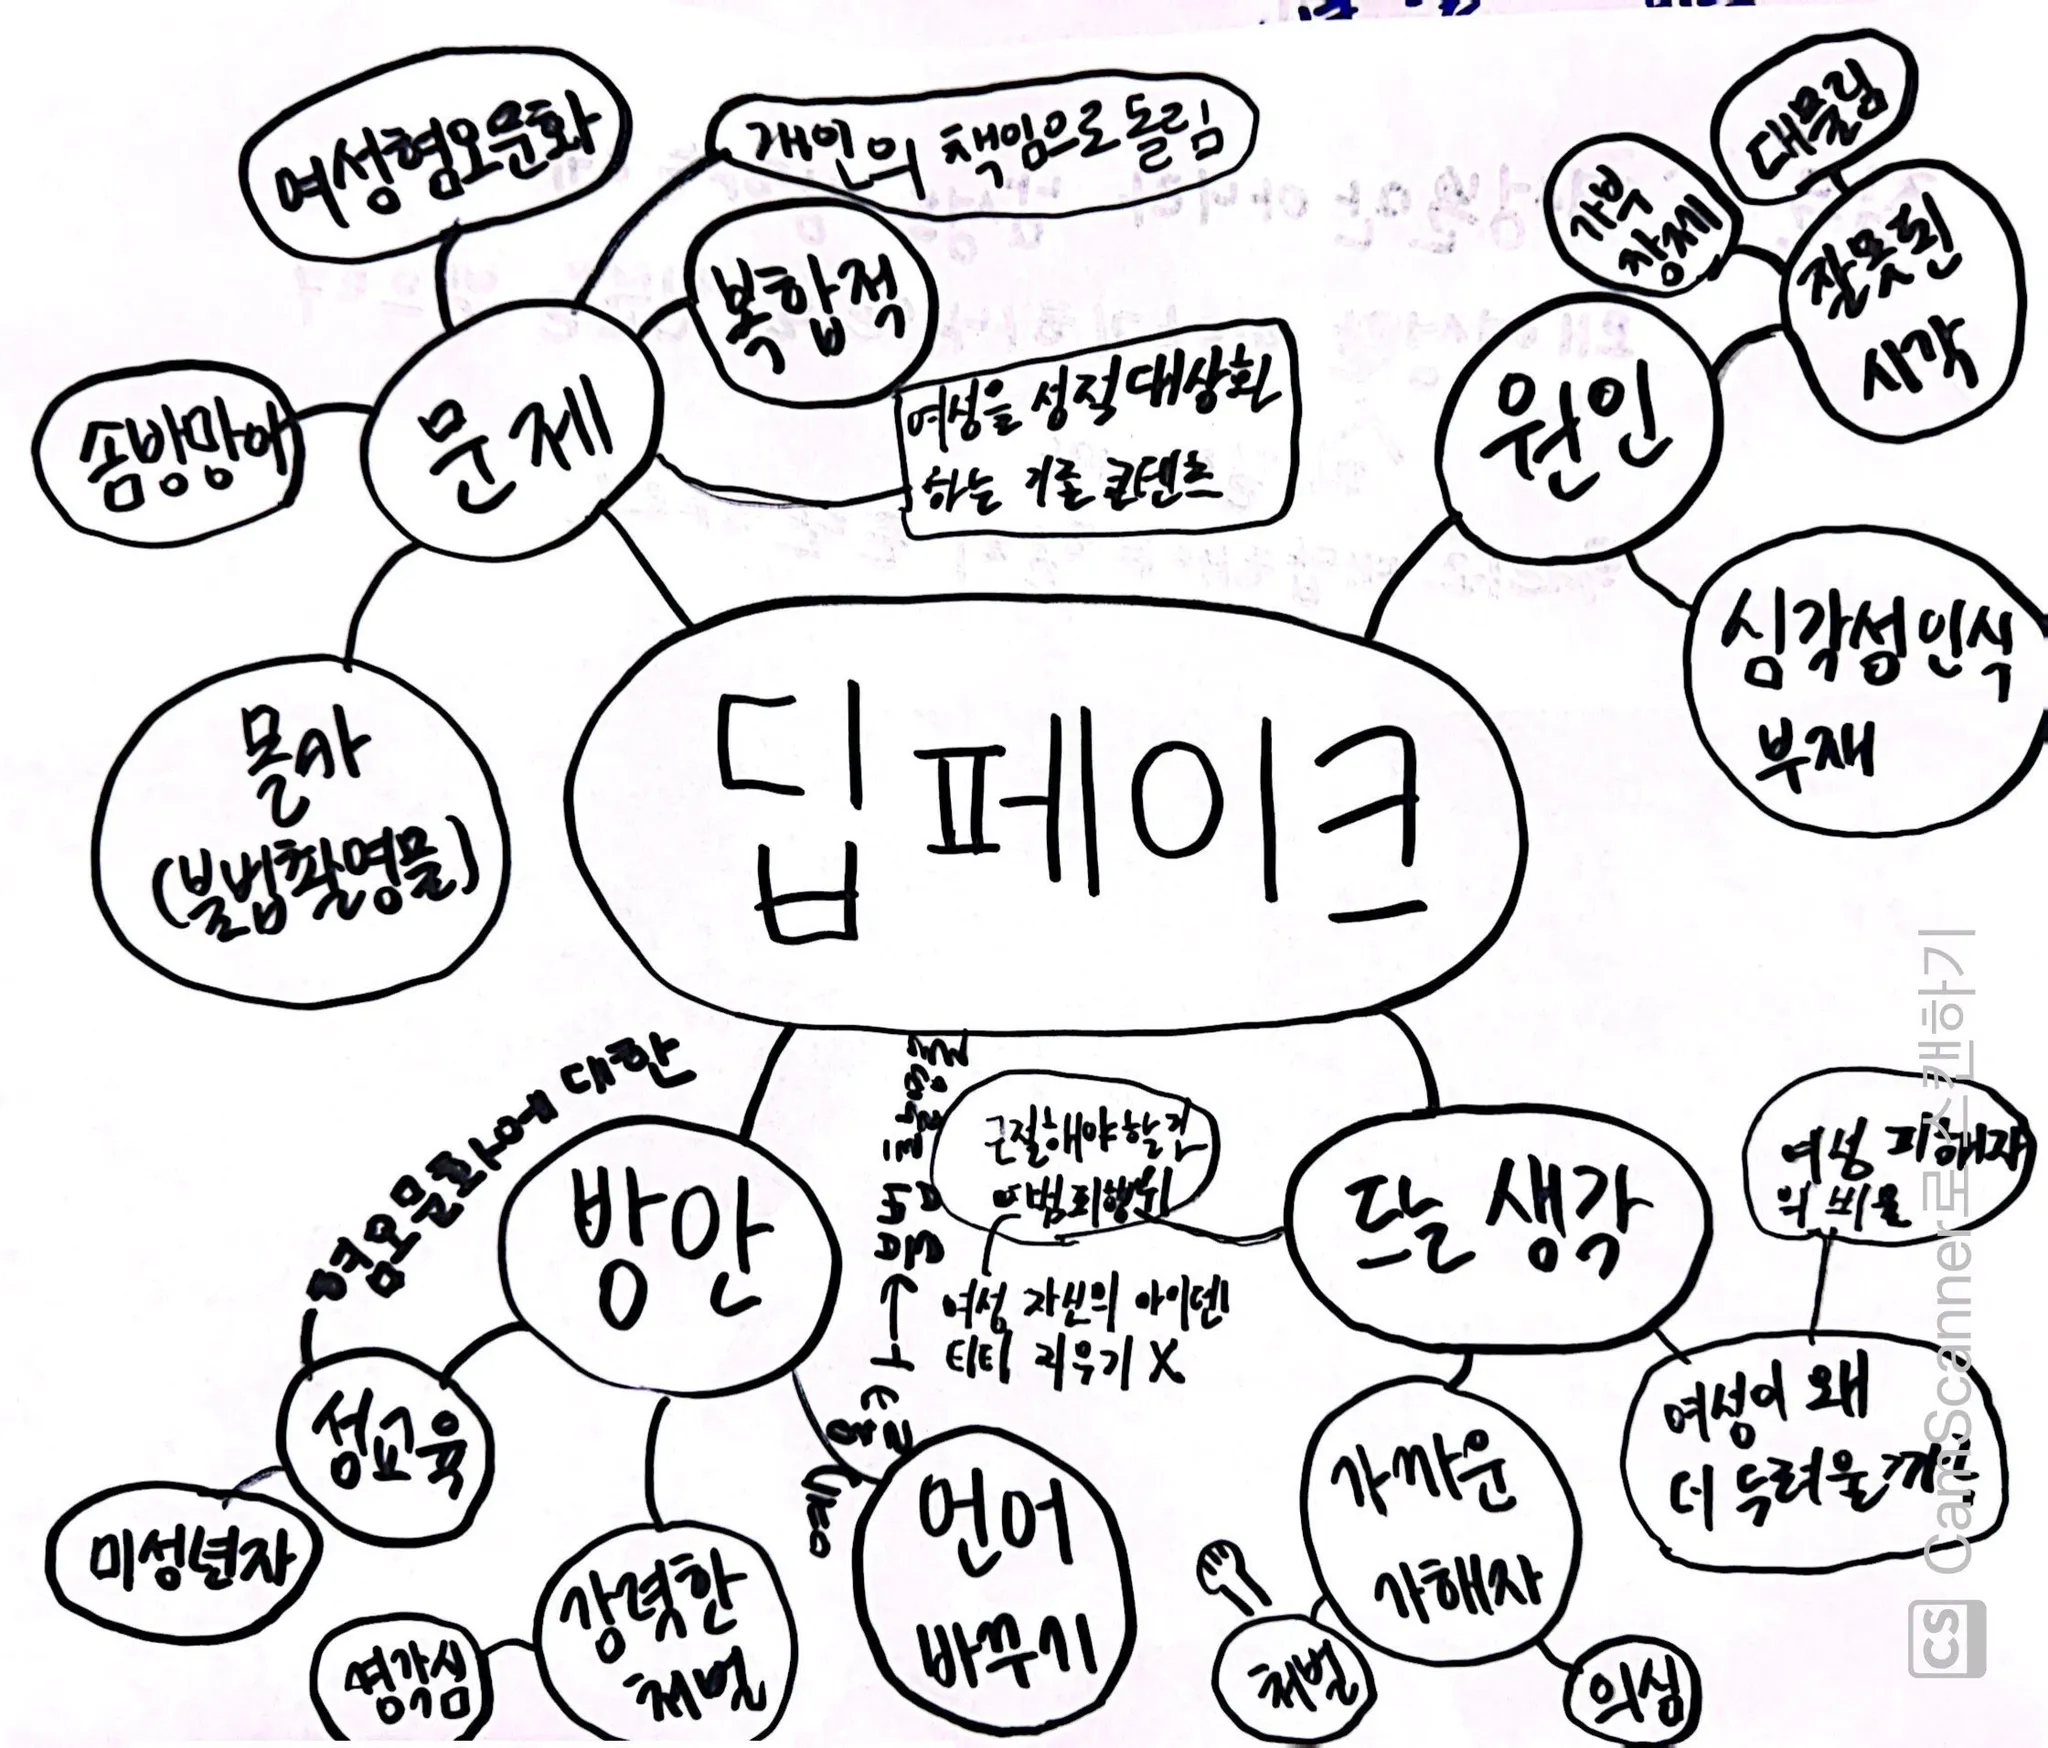 여성혐오문화
개인의 책임으로 돌림
복합적
여성을 성적대상화
하는 기존 콘텐츠
솜방망이
문제
몰카
(불법촬영물)
대물림
가부
장제
잘못된
시각
원인
심각성인식
부재
딥페이크
에 대한
방안
성교육
미성년자
강력한
처벌
경각심
언어
바꾸기
근절해야할건
범죄행위
여성 자신의 아이덴
티티 지우기 X
뜯 생각
여성 피해자
의 비율
여성이 왜
더 두려울까
가까운
가해자
처벌
의심
CS CamScanner로 스캔하기